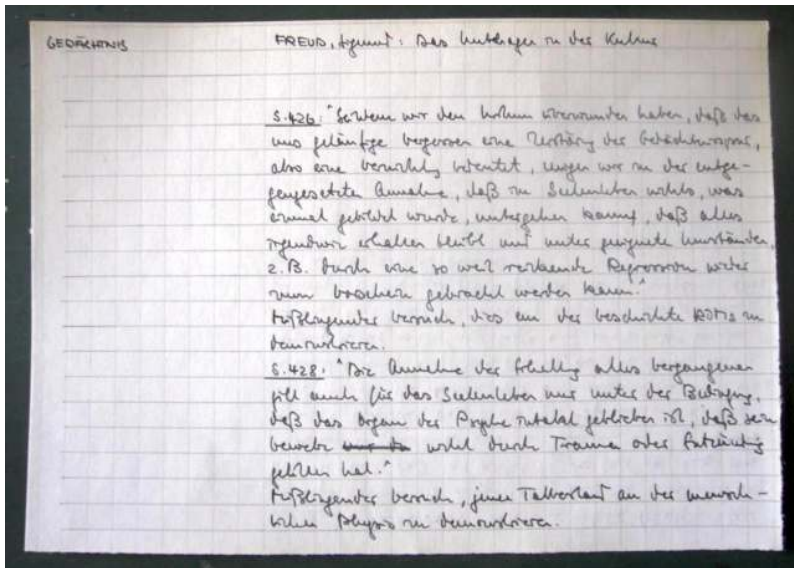 GEDÄCHTNIS
FREUD, Sigmund: Das Unbehagen in der Kultur
S. 426: "Seitdem wir den Irrtum überwunden haben, daß das
uns geläufige Vergessen eine Zerstörung der Gedächtnisspur,
also eine Vernichtung bedeutet, neigen wir zu der entge-
gengesetzten Annahme, daß im Seelenleben nichts, was
einmal gebildet wurde, untergehen kann, daß alles
irgendwie erhalten bleibt und unter geeigneten Umständen,
z.B. durch eine so weit reichende Regression wieder
zum Vorschein gebracht werden kann."
Mißlingender Versuch, dies an der Geschichte ROMs zu
demonstrieren.
S. 428: "Die Annahme der Erhaltung alles Vergangenen
gilt auch für das Seelenleben nur unter der Bedingung,
daß das Organ der Psyche intakt geblieben ist, daß sein
Gewebe nicht durch Trauma oder Entzündung
gelitten hat."
Mißlingender Versuch, jenen an der mensch-
lichen Physis zu demonstrieren.